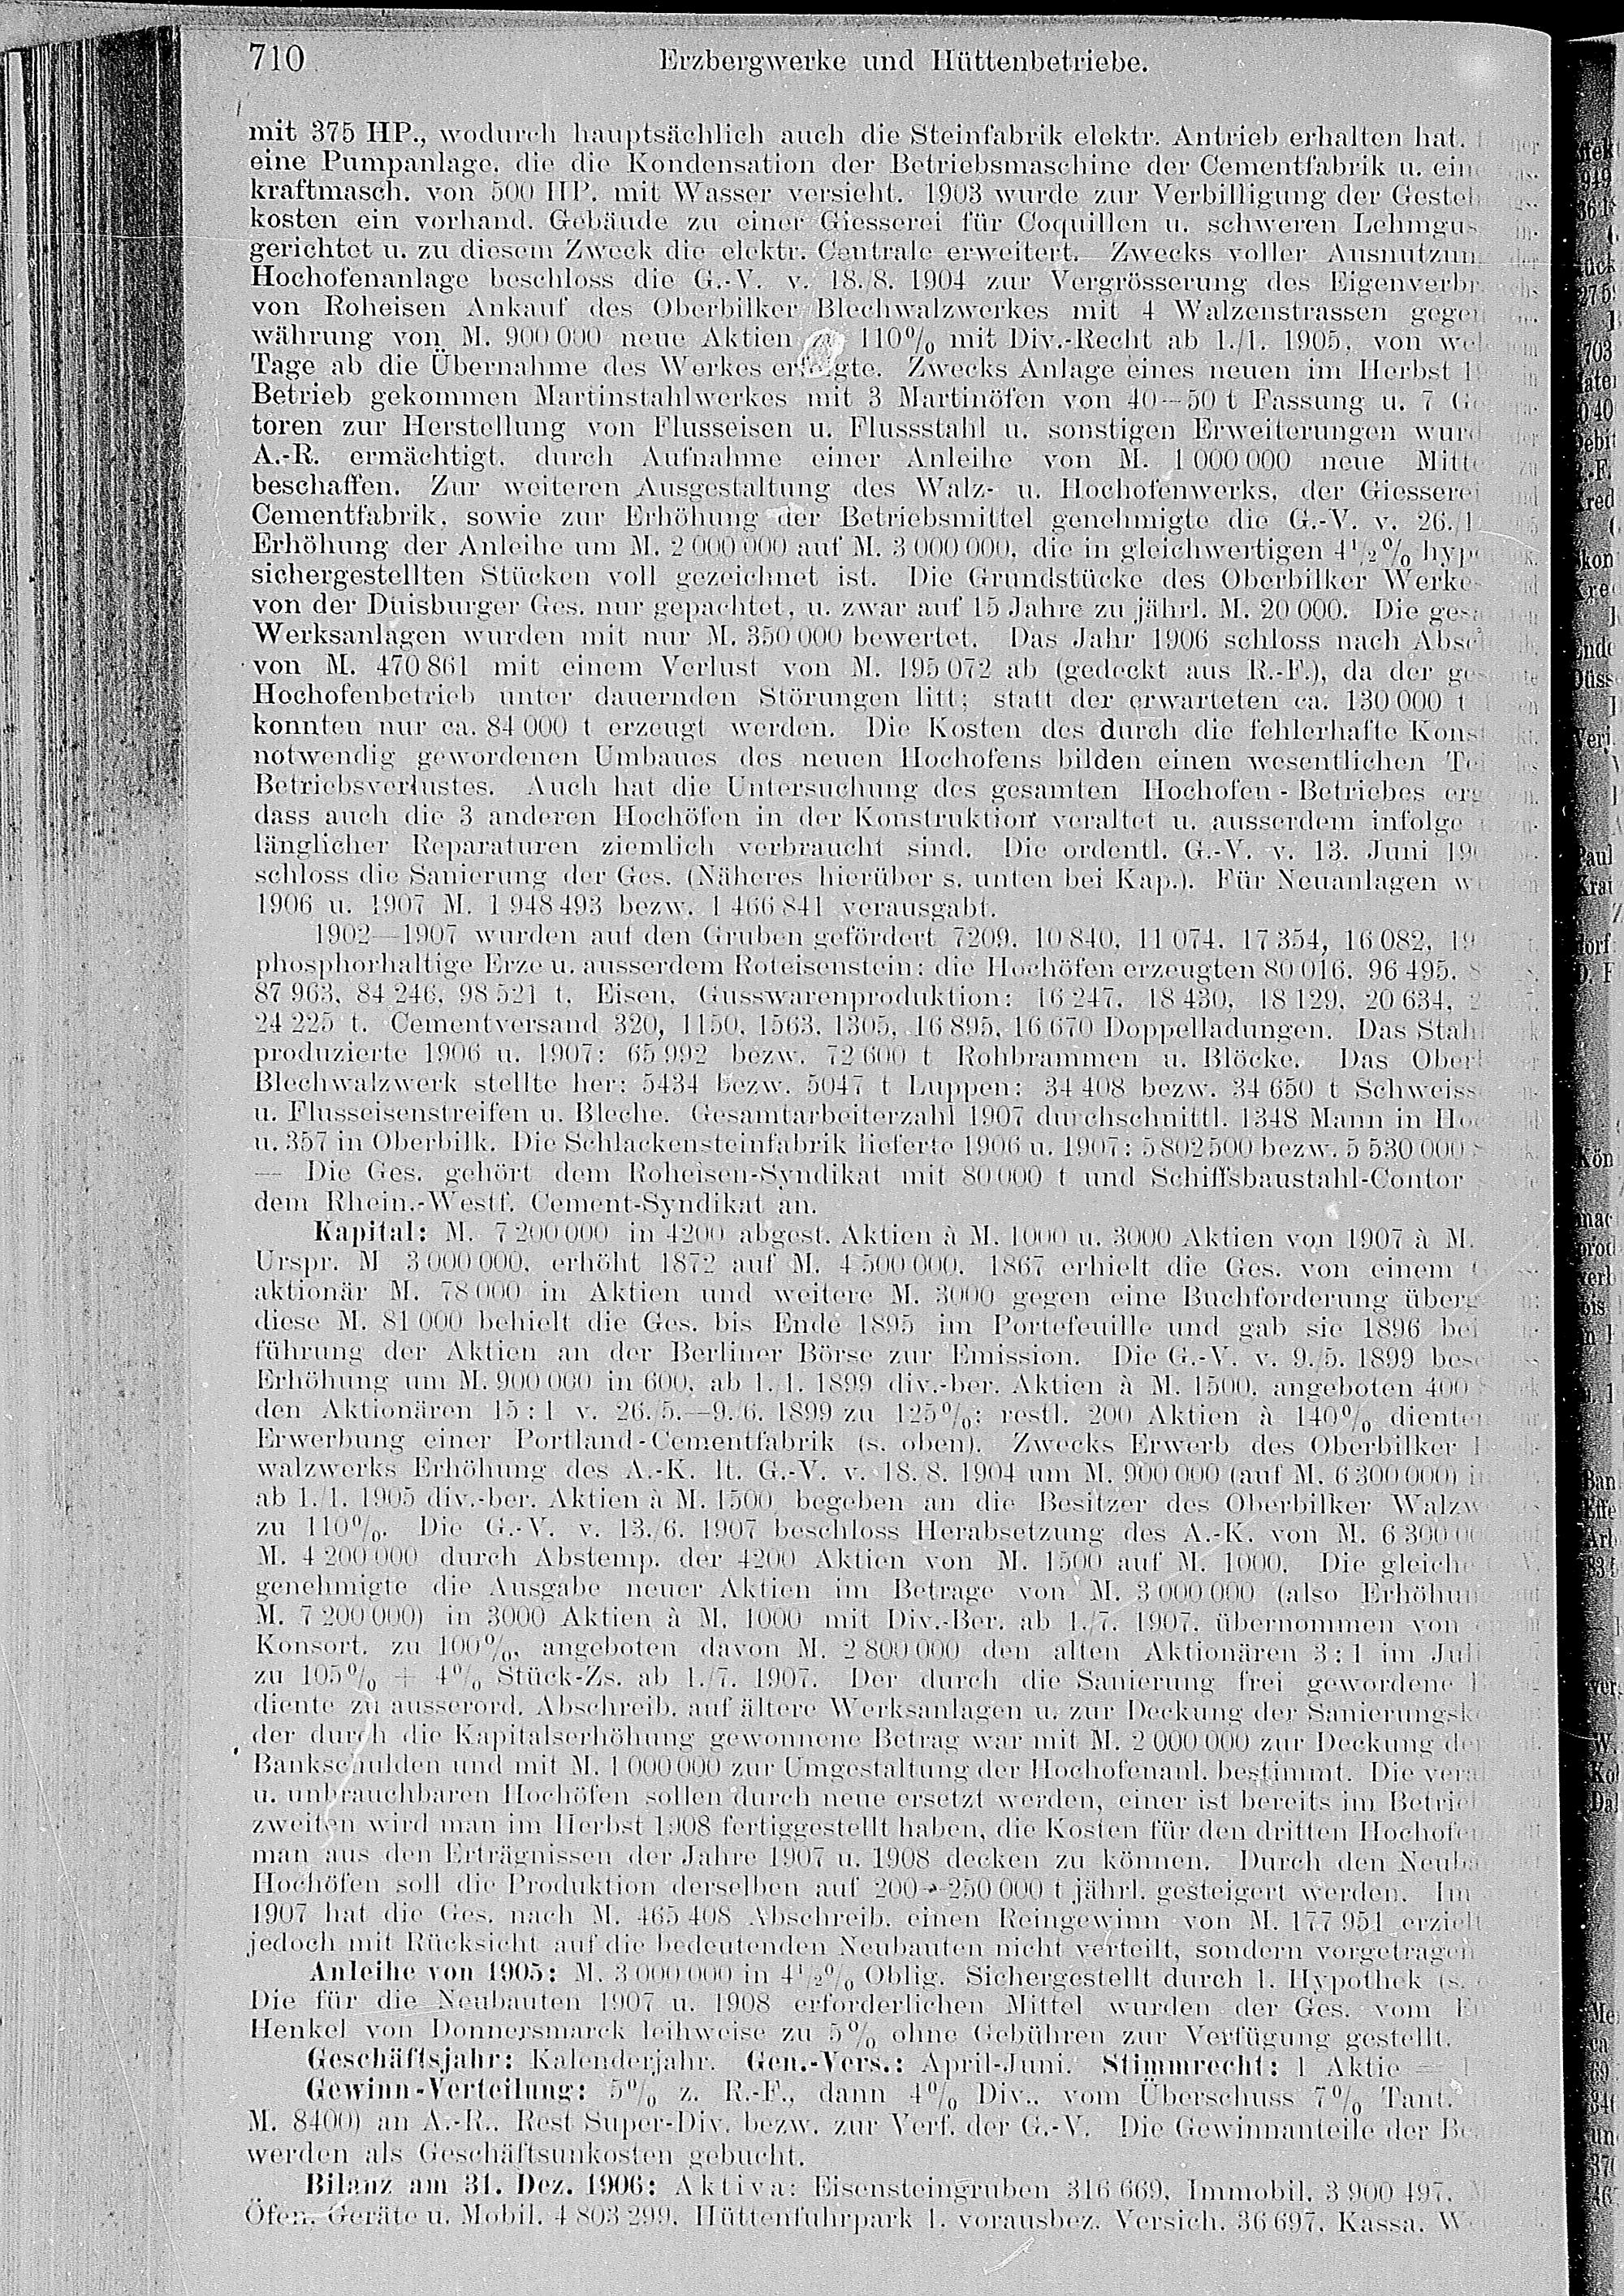 710
Erzbergwerke und Hüttenbetriebe.
mit 375 HP., wodurch hauptsächlich auch die Steinfabrik elektr. Antrieb erhalten hat.
eine Pumpanlage, die die Kondensation der Betriebsmaschine der Cementfabrik u. eine
kraftmasch. von 500 HP. mit Wasser versieht. 1903 wurde zur Verbilligung der Gesteh
kosten ein vorhand. Gebäude zu einer Giesserei für Coquillen u. schweren Lehmgus
gerichtet u. zu diesem Zweck die elektr. Centrale erweitert. Zwecks voller Ausnutzun
Hochofenanlage beschloss die G.-V. v. 18./8. 1904 zur Vergrösserung des Eigenverbr
von Roheisen Ankauf des Oberbilker Blechwalzwerkes mit 4 Walzenstrassen gegen
währung von M. 900 000 neue Aktien zu 110% mit Div.-Recht ab 1./1. 1905, von wel
Tage ab die Übernahme des Werkes erfolgte. Zwecks Anlage eines neuen im Herbst
Betrieb gekommen Martinstahlwerkes mit 3 Martinöfen von 40—50 t Fassung u. 7
toren zur Herstellung von Flusseisen u. Flussstahl u. sonstigen Erweiterungen wurd
A.-R. ermächtigt, durch Aufnahme einer Anleihe von M. 1 000 000 neue Mitte zu
beschaffen. Zur weiteren Ausgestaltung des Walz- u. Hochofenwerks, der Giesserei und
Cementfabrik, sowie zur Erhöhung der Betriebsmittel genehmigte die G.-V. v.
Erhöhung der Anleihe um M. 2 000 000 auf M. 3 000 000, die in gleichwertigen 4½% hypo
sichergestellten Stücken voll gezeichnet ist. Die Grundstücke des Oberbilker Werke
von der Duisburger Ges. nur gepachtet, u. zwar auf 15 Jahre zu jährl. M. 20 000. Die gesa
Werksanlagen wurden mit nur M. 350 000 bewertet. Das Jahr 1906 schloss nach Absch
von M. 470 861 mit einem Verlust von M. 195 072 ab (gedeckt aus R.-F.), da der ges
Hochofenbetrieb unter dauernden Störungen litt; statt der erwarteten ca. 130 000 t
konnten nur ca. 84 000 t erzeugt werden. Die Kosten des durch die fehlerhafte Konst
notwendig gewordenen Umbaues des neuen Hochofens bilden einen wesentlichen Tei
Betriebsverlustes. Auch hat die Untersuchung des gesamten Hochofen-Betriebes erg
dass auch die 3 anderen Hochöfen in der Konstruktion veraltet u. ausserdem infolge
länglicher Reparaturen ziemlich verbraucht sind. Die ordentl. G.-V. v. 13. Juni 190
schloss die Sanierung der Ges. (Näheres hierüber s. unten bei Kap.). Für Neuanlagen
1906 u. 1907 M. 1 948 493 bezw. 1 466 841 verausgabt.
1902—1907 wurden auf den Gruben gefördert 7209, 10 840, 11 074, 17 354, 16 082, 19
phosphorhaltige Erze u. ausserdem Roteisenstein; die Hochöfen erzeugten 80 016, 96 495,
87 963, 84 246, 98 521 t. Eisen, Gusswarenproduktion: 16 247, 18 430, 18 129, 20 634,
24 225 t. Cementversand 320, 1150, 1563, 1305, 16 895, 16 670 Doppelladungen. Das Stahl
produzierte 1906 u. 1907: 65 992 bezw. 72 600 t Rohbrammen u. Blöcke. Das Oberb
Blechwalzwerk stellte her: 5434 bezw. 5047 t Luppen; 34 408 bezw. 34 650 t Schweiss
u. Flusseisenstreifen u. Bleche. Gesamtarbeiterzahl 1907 durchschnittl. 1348 Mann in Hoc
u. 357 in Oberbilk. Die Schlackensteinfabrik lieferte 1906 u. 1907: 5 802 500 bezw. 5 530 000
— Die Ges. gehört dem Roheisen-Syndikat mit 80 000 t und Schiffsbaustahl-Contor
dem Rhein.-Westf. Cement-Syndikat an.
Kapital: M. 7 200 000 in 4200 abgest. Aktien à M. 1000 u. 3000 Aktien von 1907 à M.
Urspr. M 3 000 000, erhöht 1872 auf M. 4 500 000. 1867 erhielt die Ges. von einem
aktionär M. 78 000 in Aktien und weitere M. 3000 gegen eine Buchforderung überg
diese M. 81 000 behielt die Ges. bis Ende 1895 im Portefeuille und gab sie 1896 bei
führung der Aktien an der Berliner Börse zur Emission. Die G.-V. v. 9./5. 1899 besc
Erhöhung um M. 900 000 in 600, ab 1./1. 1899 div.-ber. Aktien à M. 1500, angeboten 400
den Aktionären 15:1 v. 26./5.—9./6. 1899 zu 125%; restl. 200 Aktien à 140% dienten
Erwerbung einer Portland-Cementfabrik (s. oben). Zwecks Erwerb des Oberbilker
walzwerks Erhöhung des A.-K. lt. G.-V. v. 18./8. 1904 um M. 900 000 (auf M. 6 300 000)
ab 1./1. 1905 div.-ber. Aktien à M. 1500 begeben an die Besitzer des Oberbilker Walzw
zu 110%. Die G.-V. v. 13./6. 1907 beschloss Herabsetzung des A.-K. von M. 6 300 000 auf
M. 4 200 000 durch Abstemp. der 4200 Aktien von M. 1500 auf M. 1000. Die gleiche
genehmigte die Ausgabe neuer Aktien im Betrage von M. 3 000 000 (also Erhöhun
M. 7 200 000) in 3000 Aktien à M. 1000 mit Div.-Ber. ab 1./7. 1907, übernommen von
Konsort. zu 100%, angeboten davon M. 2 800 000 den alten Aktionären 3:1 im Juli
zu 105% + 4% Stück-Zs. ab 1./7. 1907. Der durch die Sanierung frei gewordene
diente zu ausserord. Abschreib. auf ältere Werksanlagen u. zur Deckung der Sanierungsko
der durch die Kapitalserhöhung gewonnene Betrag war mit M. 2 000 000 zur Deckung der
Bankschulden und mit M. 1 000 000 zur Umgestaltung der Hochofenanl. bestimmt. Die veral
u. unbrauchbaren Hochöfen sollen durch neue ersetzt werden, einer ist bereits im Betrieb
zweiten wird man im Herbst 1908 fertiggestellt haben, die Kosten für den dritten Hochofen
man aus den Erträgnissen der Jahre 1907 u. 1908 decken zu können. Durch den Neuba
Hochöfen soll die Produktion derselben auf 200—250 000 t jährl. gesteigert werden. Im
1907 hat die Ges. nach M. 465 408 Abschreib. einen Reingewinn von M. 177 951 erzielt
jedoch mit Rücksicht auf die bedeutenden Neubauten nicht verteilt, sondern vorgetragen
Anleihe von 1905: M. 3 000 000 in 4½% Oblig. Sichergestellt durch 1. Hypothek (s.
Die für die Neubauten 1907 u. 1908 erforderlichen Mittel wurden der Ges. vom
Henkel von Donnersmarck leihweise zu 5% ohne Gebühren zur Verfügung gestellt.
Geschäftsjahr: Kalenderjahr. Gen.-Vers.: April-Juni. Stimmrecht: 1 Aktie =
Gewinn-Verteilung: 5% z. R.-F., dann 4% Div., vom Überschuss 7% Tant.
M. 8400) an A.-R., Rest Super-Div. bezw. zur Verf. der G.-V. Die Gewinnanteile der Be
werden als Geschäftsunkosten gebucht.
Bilanz am 31. Dez. 1906: Aktiva: Eisensteingruben 316 669, Immobil. 3 900 497,
Öfen, Geräte u. Mobil. 4 803 299, Hüttenfuhrpark 1, vorausbez. Versich. 36 697, Kassa,